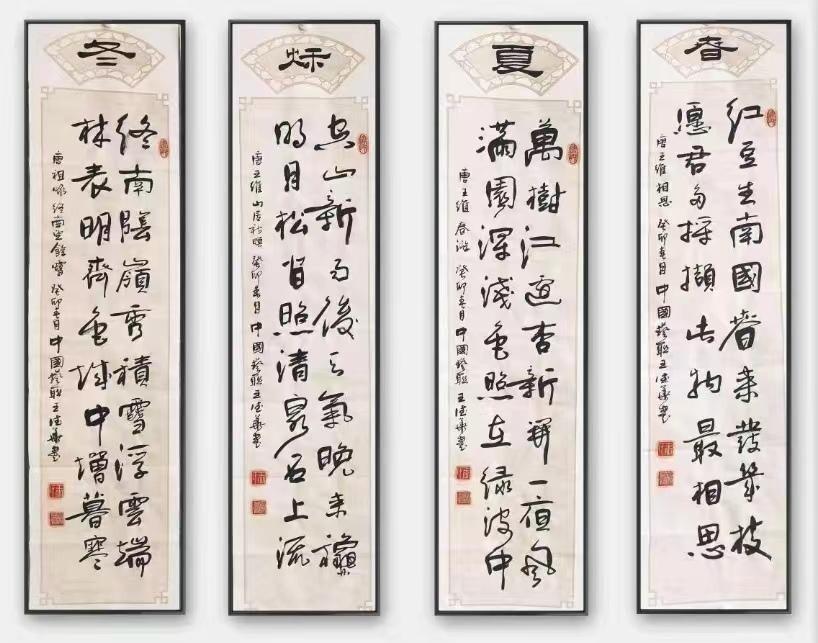 春
红豆生南國春来發幾枝
愿君多採擷此物最相思
唐王維相思 癸卯春月中國楹联王德書
夏
萬樹江邊杏新開一夜風
滿園深淺色照在绿波中
唐王維春游 癸卯春月中國楹联王德書
秋
空山新雨後天氣晚来龝
明月松间照清泉石上流
唐王維山居秋暝 癸卯春月中國楹联王德書
冬
终南陰嶺秀積雪浮雲端
林表明霽色城中增暮寒
唐祖咏终南望餘雪 癸卯春月中國楹联王德書